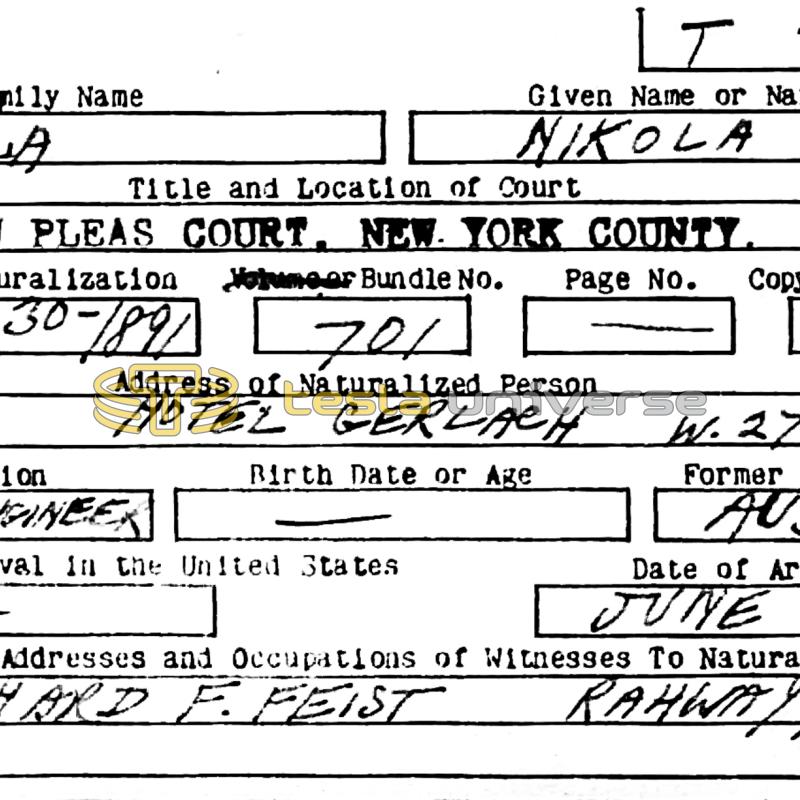 T
mily Name Given Name or Na
LA NIKOLA
Title and Location of Court
N PLEAS COURT, NEW YORK COUNTY.
uralization Volume or Bundle No. Page No. Copy
30-1891 701 —
Address of Naturalized Person
tesla universe
HOTEL GERLACH W. 27
ion Birth Date or Age Former
NGINEER — AUS
val in the United States Date of Ar
- JUNE
Addresses and Occupations of Witnesses To Natura
HARD F. FEIST RAHWAY,